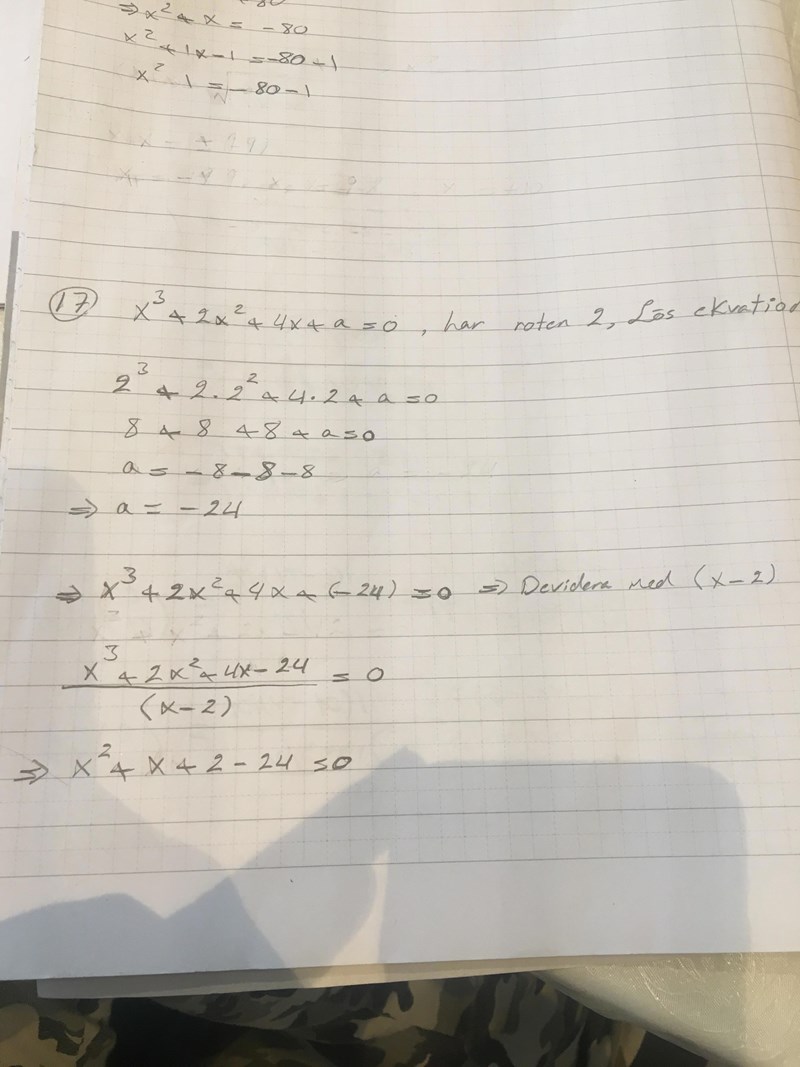 ⇒ x² + x = -80
x² + 1x - 1 = -80 - 1
x² 1 = - 80 - 1
17 x³ + 2x² + 4x + a = 0, har roten 2, Lös ekvatio
2³ + 2·2² + 4·2 + a = 0
8 + 8 + 8 + a = 0
a = -8-8-8
⇒ a = -24
⇒ x³ + 2x² + 4x + (-24) = 0 ⇒ Devidera med (x-2)
x³ + 2x² + 4x - 24 = 0
(x-2)
⇒ x² + x + 2 - 24 = 0